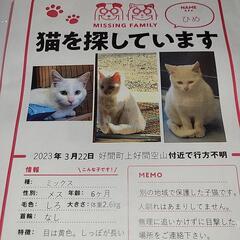 MISSING FAMILY
NAME
ひめ
猫を探しています
2023年 3月22日 好間町上好間空山 付近で行方不明
情報
こんな子です!
種: ミックス
性別: メス 年齢: 6ヶ月
毛色: しろ 大きさ: 体重2.6kg
首輪: なし
特徴: 目は黄色。しっぽが長い
MEMO
別の地域で保護した子猫です。
人馴れはまありしてません。
無理に追いかけずに目撃した
場所をご連絡下さい。